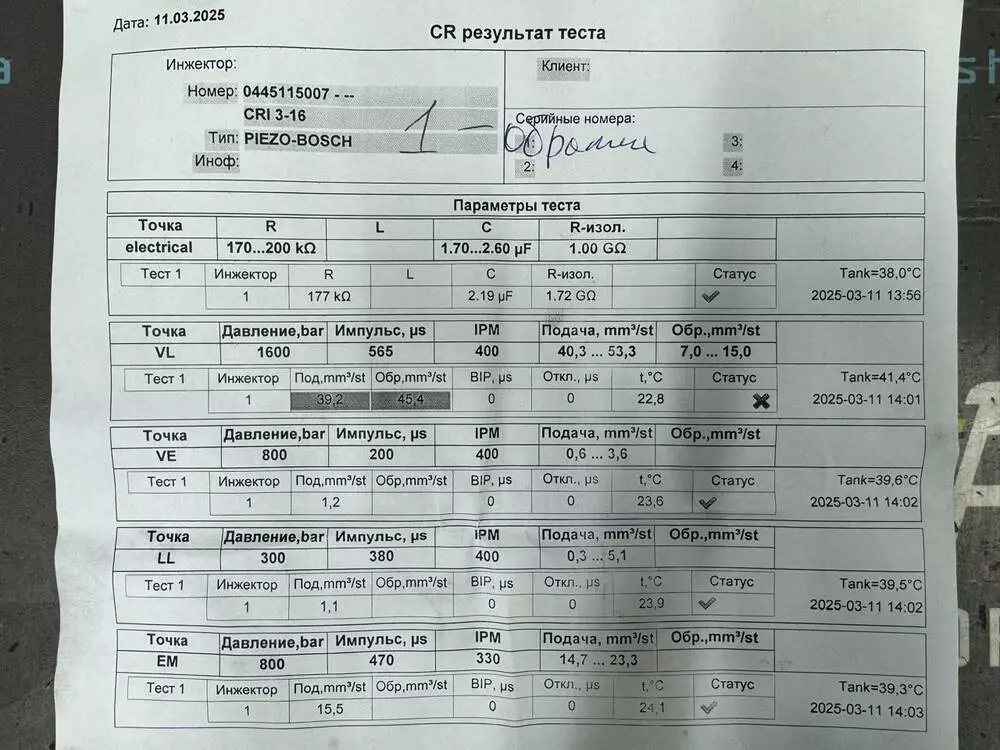 Дата: 11.03.2025
CR результат теста
Инжектор:
Клиент:
Номер: 0445115007 - --
CRI 3-16
Серийные номера:
Тип: PIEZO-BOSCH
1 -
1: 3:
Иноф:
2: 4:
Параметры теста
Точка R L C R-изол.
electrical 170...200 kΩ 1.70...2.60 µF 1.00 GΩ
Тест 1 Инжектор R L C R-изол. Статус Tank=38,0°C
1 177 kΩ 2.19 µF 1.72 GΩ 2025-03-11 13:56
Точка Давление,bar Импульс, µs IPM Подача, mm³/st Обр.,mm³/st
VL 1600 565 400 40,3 ... 53,3 7,0 ... 15,0
Тест 1 Инжектор Под,mm³/st Обр,mm³/st BIP, µs Откл., µs t,°C Статус Tank=41,4°C
1 39,2 45,4 0 0 22,8 2025-03-11 14:01
Точка Давление,bar Импульс, µs IPM Подача, mm³/st Обр.,mm³/st
VE 800 200 400 0,6 ... 3,6
Тест 1 Инжектор Под,mm³/st Обр,mm³/st BIP, µs Откл., µs t,°C Статус Tank=39,6°C
1 1,2 0 0 23,6 2025-03-11 14:02
Точка Давление,bar Импульс, µs IPM Подача, mm³/st Обр.,mm³/st
LL 300 380 400 0,3 ... 5,1
Тест 1 Инжектор Под,mm³/st Обр,mm³/st BIP, µs Откл., µs t,°C Статус Tank=39,5°C
1 1,1 0 0 23,9 2025-03-11 14:02
Точка Давление,bar Импульс, µs IPM Подача, mm³/st Обр.,mm³/st
EM 800 470 330 14,7 ... 23,3
Тест 1 Инжектор Под,mm³/st Обр,mm³/st BIP, µs Откл., µs t,°C Статус Tank=39,3°C
1 15,5 0 0 24,1 2025-03-11 14:03